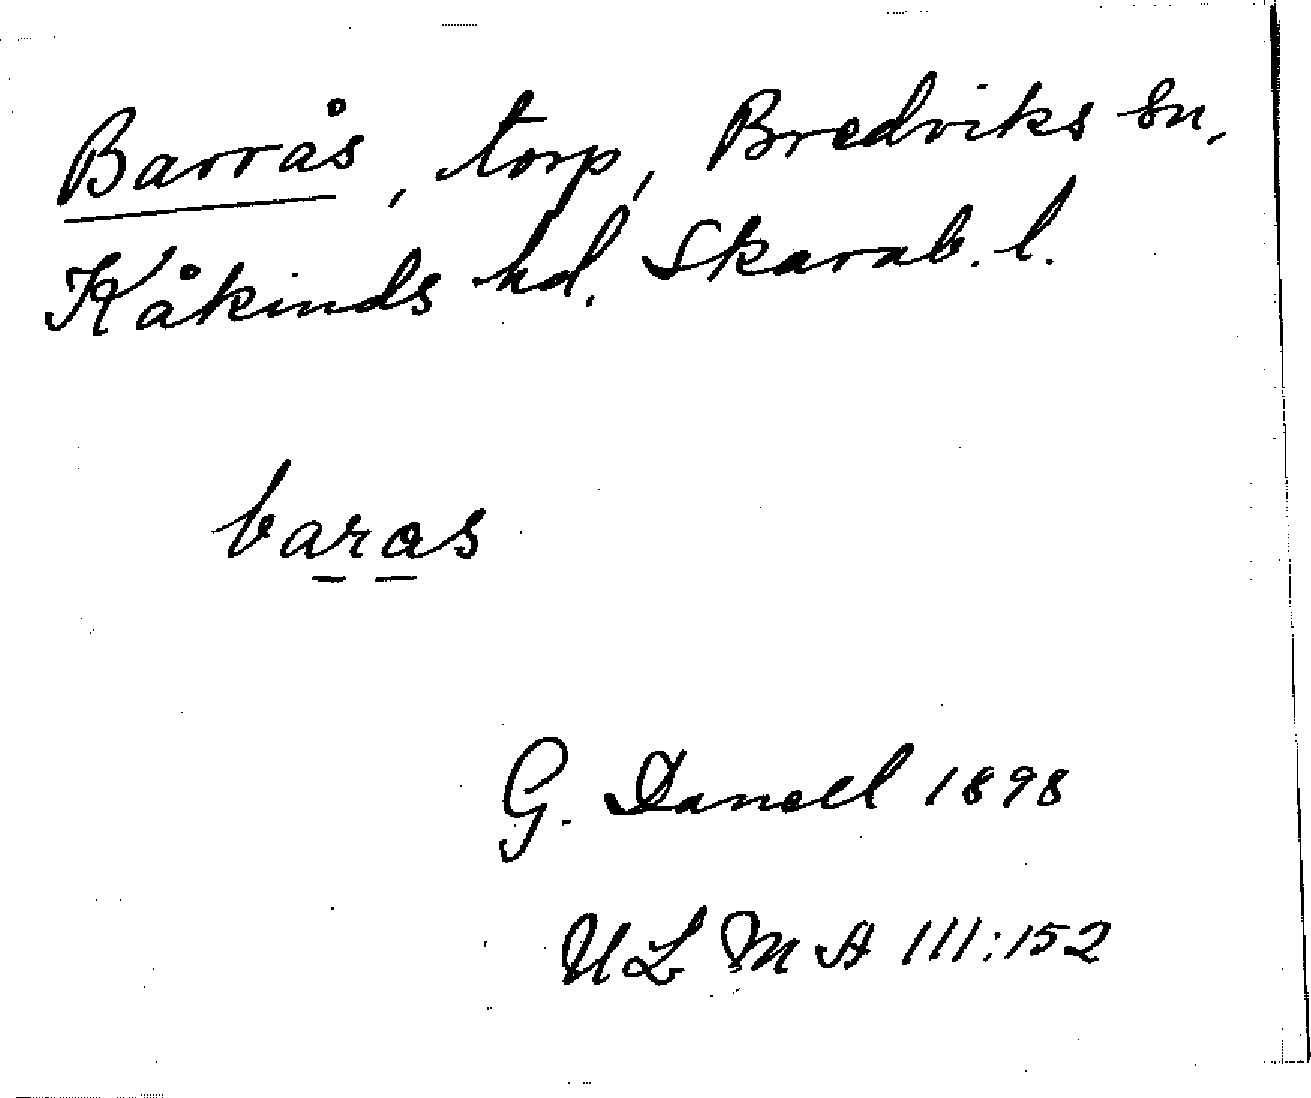 Barrås, torp, Bredviks sn,
Kåkinds hd. Skarab. l.
baras
G. Danell 1898
ULMA 111:152